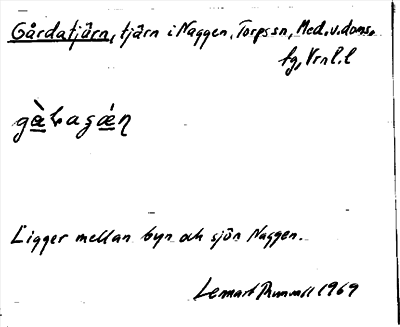 Gårdatjärn, tjärn i Naggen, Torps sn, Med. v. doms.
fg, Vrnl. l
gàƚagǽn
Ligger mellan byn och sjön Naggen.
Lennart Thummell 1969